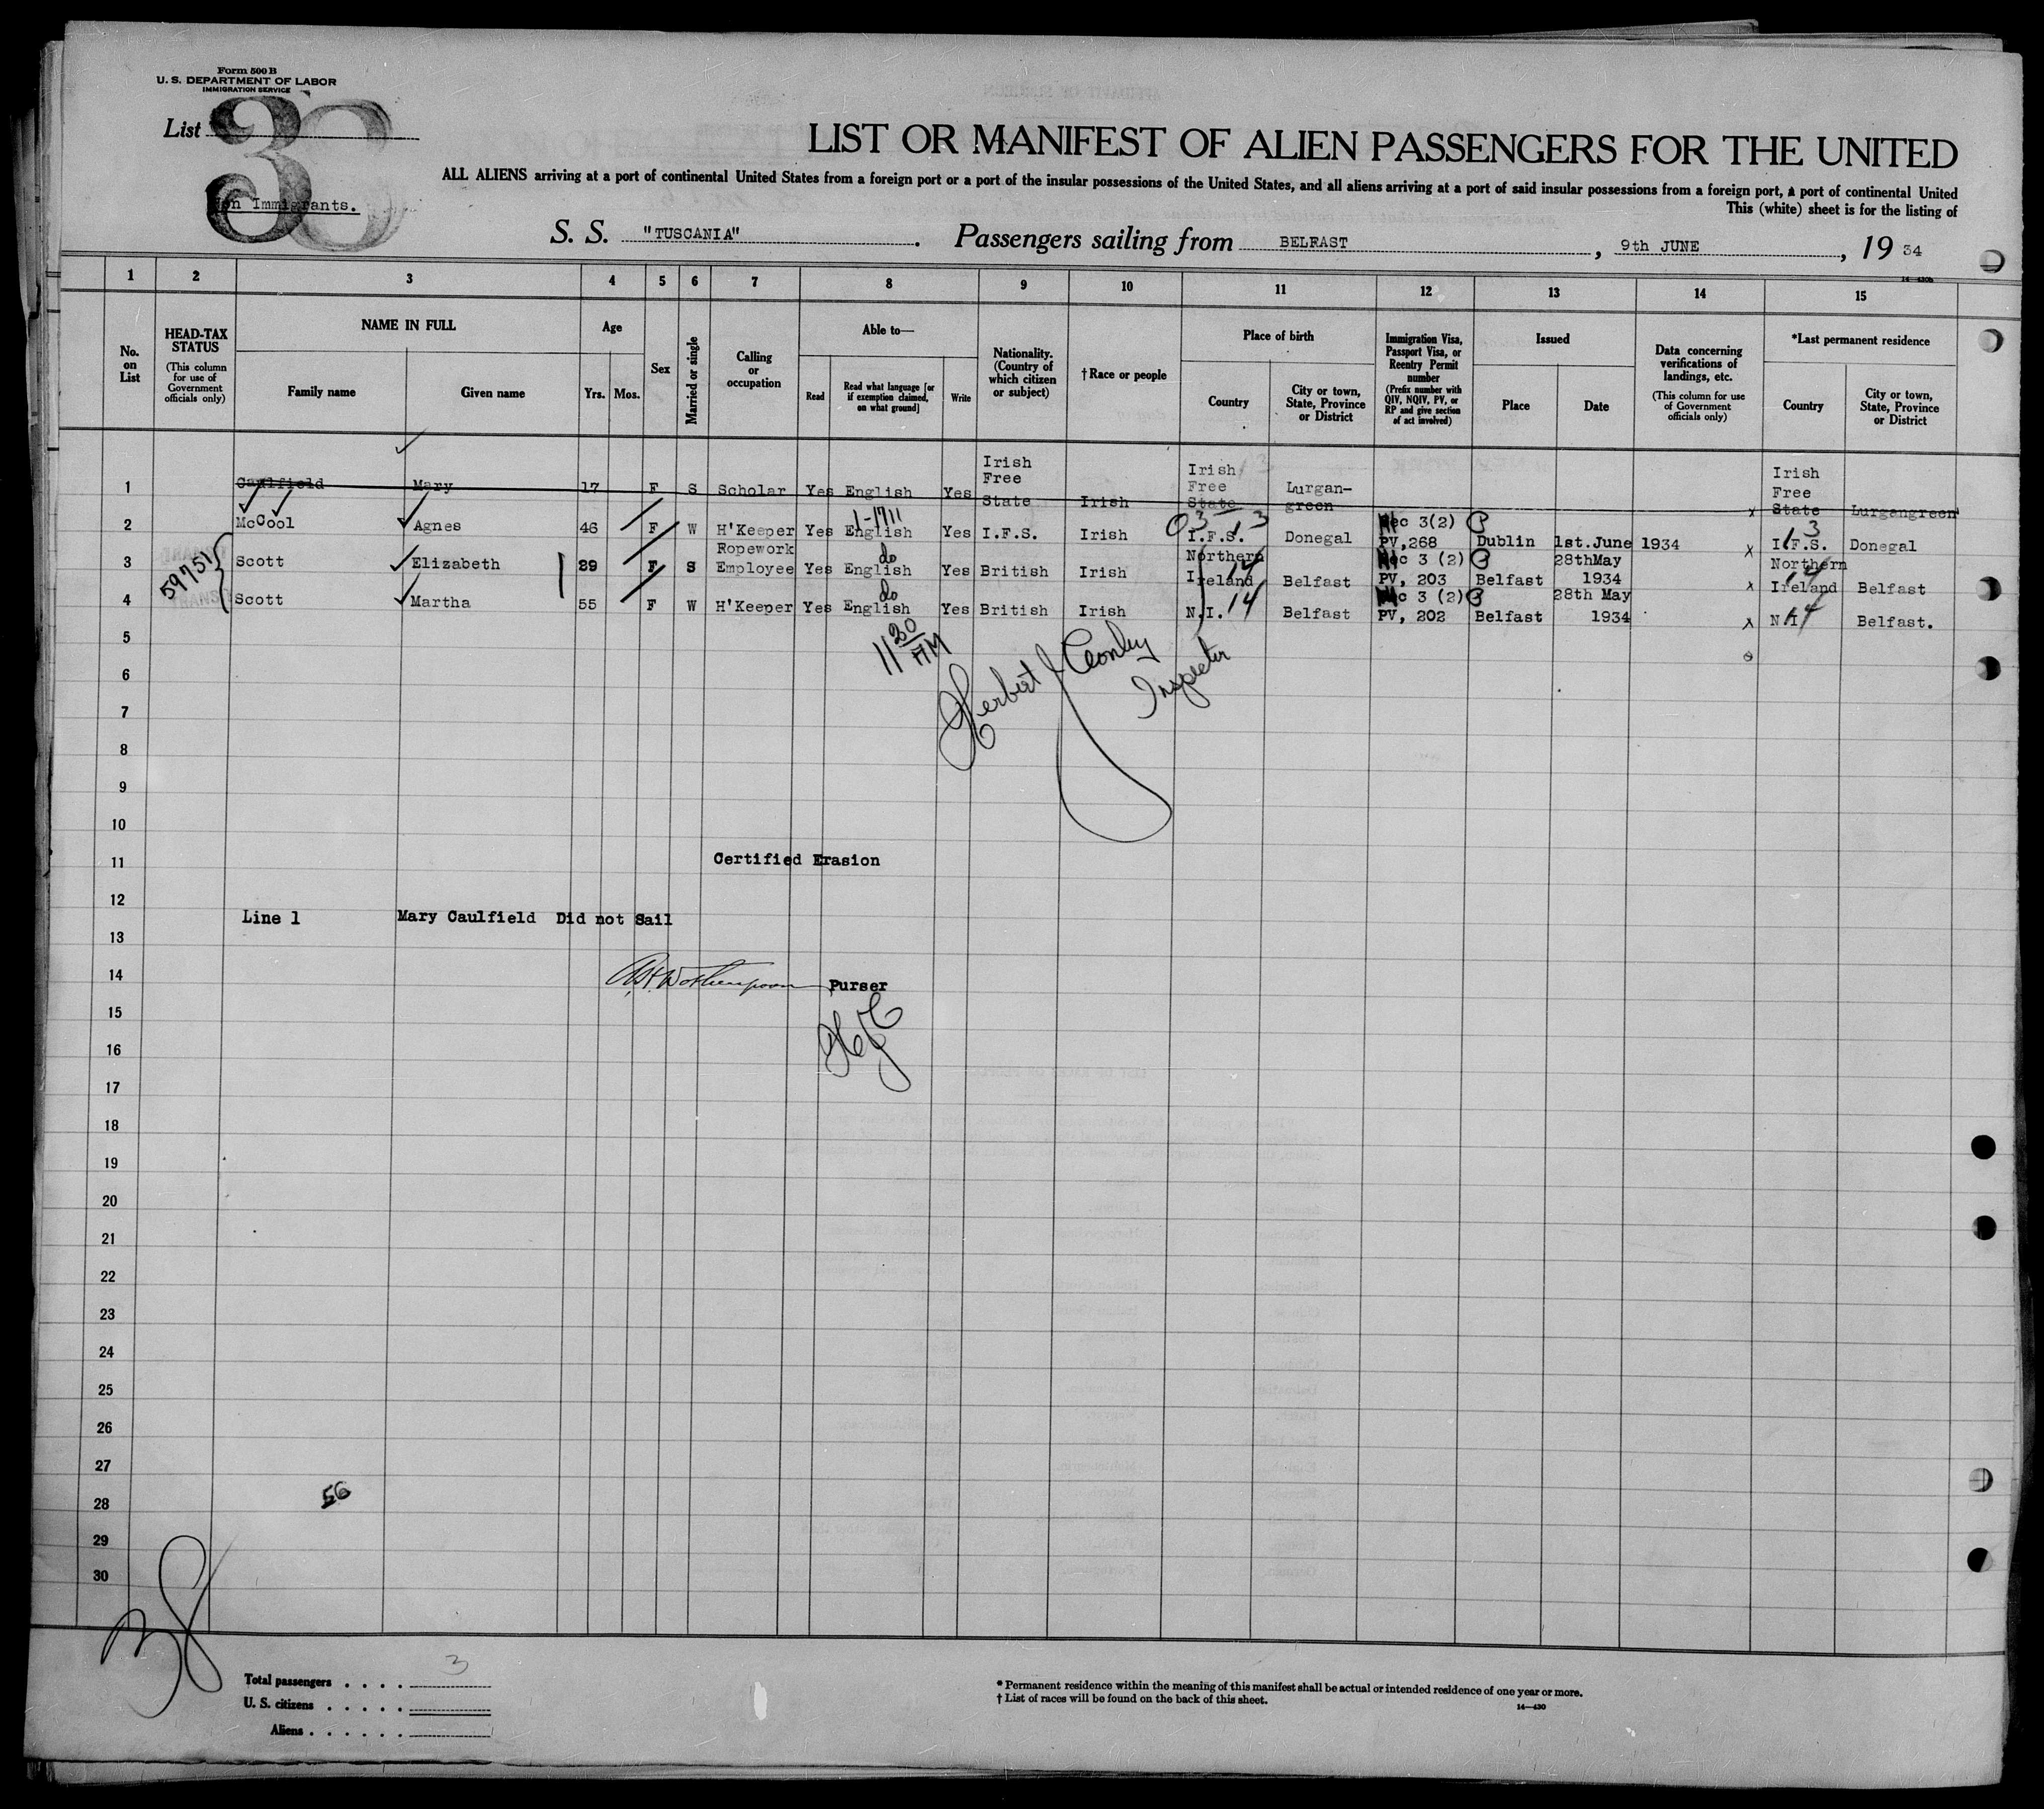 Form 500 B
U. S. DEPARTMENT OF LABOR
IMMIGRATION SERVICE
List 30
Non Immigrants.
LIST OR MANIFEST OF ALIEN PASSENGERS FOR THE UNITED
ALL ALIENS arriving at a port of continental United States from a foreign port or a port of the insular possessions of the United States, and all aliens arriving at a port of said insular possessions from a foreign port, a port of continental United
This (white) sheet is for the listing of
S. S. "TUSCANIA". Passengers sailing from BELFAST, 9th JUNE, 19 34
14—430b
1 2 3 4 5 6 7 8 9 10 11 12 13 14 15
No. on List
HEAD-TAX STATUS
(This column for use of Government officials only)
NAME IN FULL
Family name
Given name
Age
Yrs. Mos.
Sex
Married or single
Calling or occupation
Able to—
Read
Read what language [or if exemption claimed, on what ground]
Write
Nationality. (Country of which citizen or subject)
†Race or people
Place of birth
Country
City or town, State, Province or District
Immigration Visa, Passport Visa, or Reentry Permit number
(Prefix number with QIV, NQIV, PV, or RP and give section of act involved)
Issued
Place
Date
Data concerning verifications of landings, etc.
(This column for use of Government officials only)
*Last permanent residence
Country
City or town, State, Province or District
1 Caulfield Mary 17 F S Scholar Yes English Yes Irish Free State Irish Irish Free State Lurgan-green Irish Free State Lurgangreen
13
1-1711
2 McCool Agnes 46 F W H'Keeper Yes English Yes I.F.S. Irish I.F.S. Donegal Sec 3(2) PV,268 Dublin 1st.June 1934 I.F.S. Donegal
03 13 13
59751
3 Scott Elizabeth 29 F S Ropework Employee Yes English Yes British Irish Northern Ireland Belfast Sec 3 (2) PV, 203 Belfast 28thMay 1934 Northern Ireland Belfast
do 14 14
4 Scott Martha 55 F W H'Keeper Yes English Yes British Irish N.I. Belfast Sec 3 (2) PV, 202 Belfast 28th May 1934 N.I. Belfast.
do 14 14
5
11 30 AM
Herbert J Conley
Inspector
6
7
8
9
10
11 Certified Erasion
12
Line 1 Mary Caulfield Did not Sail
13
14 Purser
15
HJC
16
17
18
19
20
21
22
23
24
25
26
27
28
56
29
30
Total passengers . . . . 3
U. S. citizens . . . . .
Aliens . . . . . .
* Permanent residence within the meaning of this manifest shall be actual or intended residence of one year or more.
† List of races will be found on the back of this sheet.
14—430